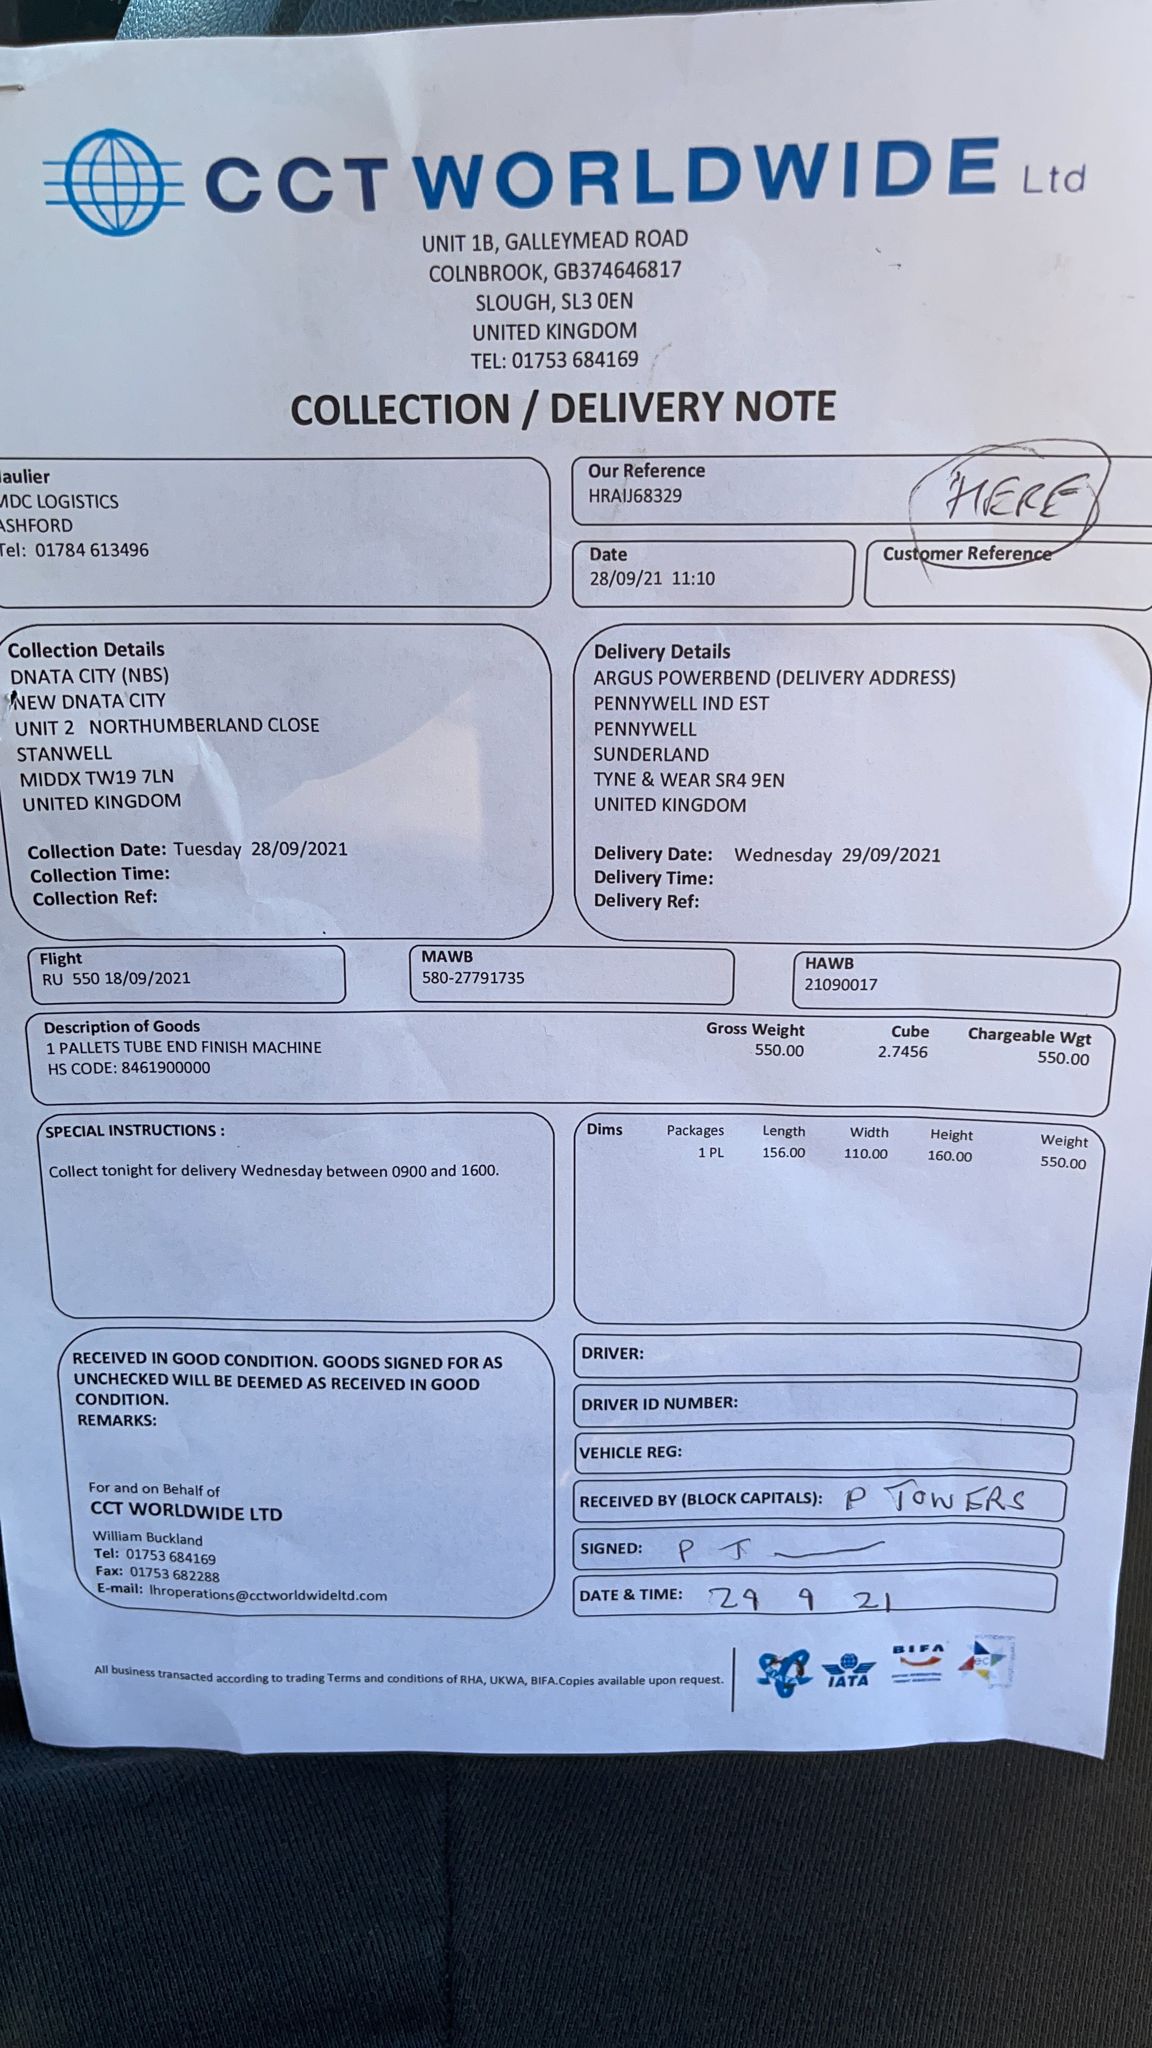 CCT WORLDWIDE Ltd
UNIT 1B, GALLEYMEAD ROAD
COLNBROOK, GB374646817
SLOUGH, SL3 0EN
UNITED KINGDOM
TEL: 01753 684169
COLLECTION / DELIVERY NOTE
aulier
MDC LOGISTICS
ASHFORD
Tel: 01784 613496
Our Reference
HRAIJ68329
HERE
Date
28/09/21 11:10
Customer Reference
Collection Details
DNATA CITY (NBS)
NEW DNATA CITY
UNIT 2 NORTHUMBERLAND CLOSE
STANWELL
MIDDX TW19 7LN
UNITED KINGDOM
Collection Date: Tuesday 28/09/2021
Collection Time:
Collection Ref:
Delivery Details
ARGUS POWERBEND (DELIVERY ADDRESS)
PENNYWELL IND EST
PENNYWELL
SUNDERLAND
TYNE & WEAR SR4 9EN
UNITED KINGDOM
Delivery Date: Wednesday 29/09/2021
Delivery Time:
Delivery Ref:
Flight
RU 550 18/09/2021
MAWB
580-27791735
HAWB
21090017
Description of Goods Gross Weight Cube Chargeable Wgt
1 PALLETS TUBE END FINISH MACHINE 550.00 2.7456 550.00
HS CODE: 8461900000
SPECIAL INSTRUCTIONS :
Collect tonight for delivery Wednesday between 0900 and 1600.
Dims Packages Length Width Height Weight
1 PL 156.00 110.00 160.00 550.00
RECEIVED IN GOOD CONDITION. GOODS SIGNED FOR AS
UNCHECKED WILL BE DEEMED AS RECEIVED IN GOOD
CONDITION.
REMARKS:
For and on Behalf of
CCT WORLDWIDE LTD
William Buckland
Tel: 01753 684169
Fax: 01753 682288
E-mail: lhroperations@cctworldwideltd.com
DRIVER:
DRIVER ID NUMBER:
VEHICLE REG:
RECEIVED BY (BLOCK CAPITALS): P TOWERS
SIGNED: P T
DATE & TIME: 29 9 21
All business transacted according to trading Terms and conditions of RHA, UKWA, BIFA.Copies available upon request.
IATA
BIFA
ec